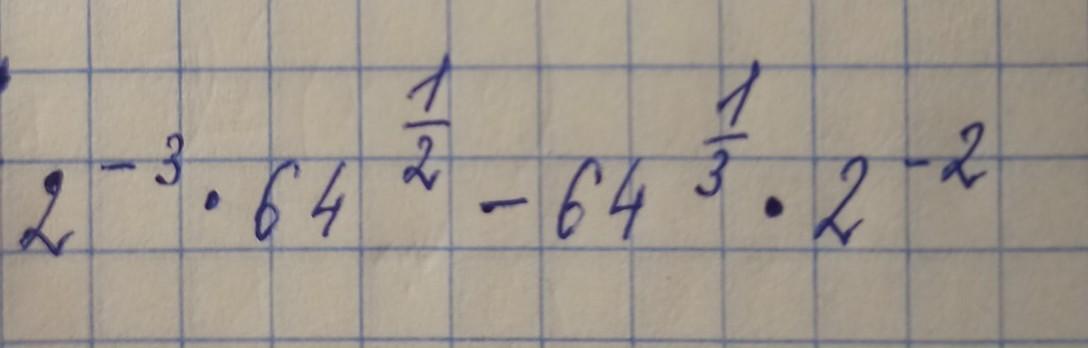 2⁻³ · 64^(1/2) - 64^(1/3) · 2⁻²